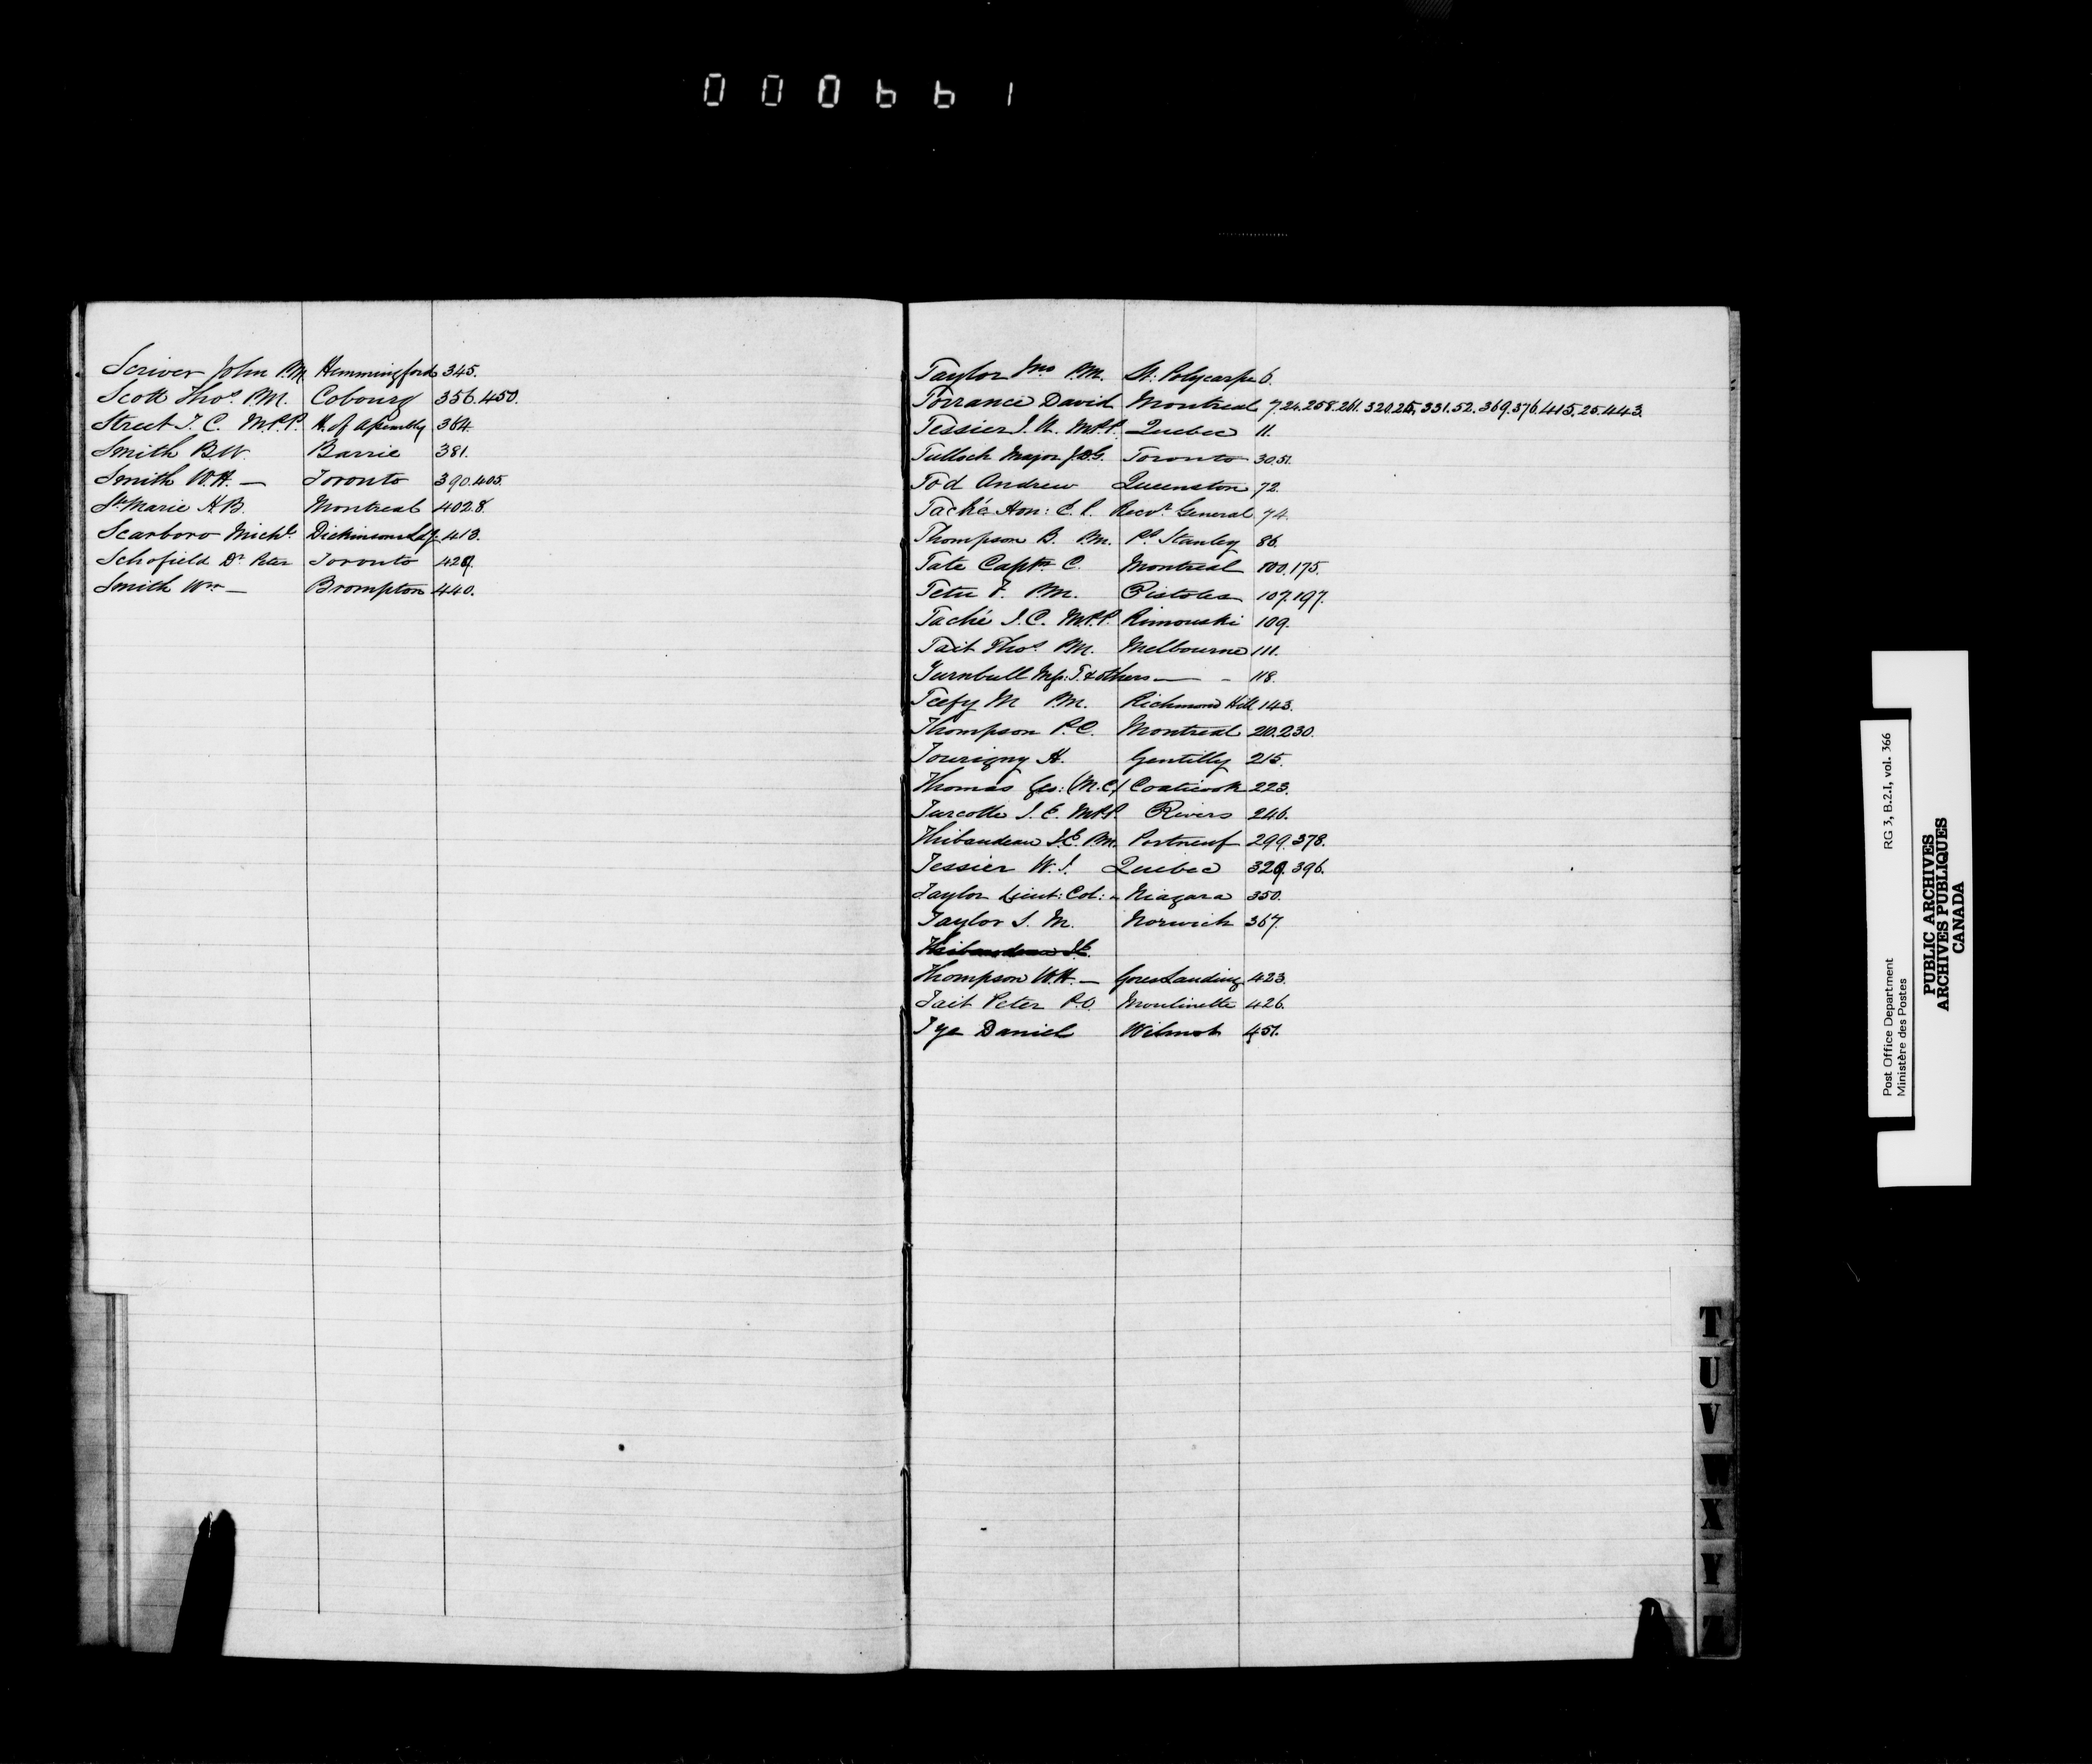 000661
Scriver John P.M. Hemmingford 345.
Scott Thos. P.M. Cobourg 356.450.
Street T. C. M.P.P. H. of Assembly 364.
Smith B.W. Barrie 381.
Smith W.H. — Toronto 390.405.
St. Marie H.B. Montreal 402.8.
Scarboro Michl. Dickinsons Ldg. 413.
Schofield Dr. Peter Toronto 429.
Smith Wm — Brompton 440.
Taylor Jno P.M. St: Polycarpe 6.
Torrance David Montreal 7.24.258.261.320.25.331.52.369.376.415.25.443.
Tessier U. M.P.P. Quebec 11.
Tulloch Major Toronto 30.51.
Tod Andrew Queenston 72.
Taché Hon: E. P. Recvr. General 74.
Thompson B. P.M. Pt. Stanley 86.
Tate Captn C. Montreal 100.175.
Tetu F. P.M. 107.197.
Taché J.C. M.P.P. Rimouski 109.
Tait Thos. P.M. Melbourne 111.
Turnbull T. & others — - 118.
Teefy M P.M. Richmond Hill 143.
Thompson P.C. Montreal 210.230.
Tourigny H. Gentilly 215.
Thomas Geo: (M.C) Coaticook 223.
Turcotte J. E. M.P.P. 3 Rivers 246.
Thibaudeau P.M. Portneuf 299.378.
Tessier W. J. Quebec 329.396.
Taylor Lieut: Col: - Niagara 350.
Taylor J. M. Norwich 367.
Thibaudeau
Thompson W.H. — Gores Landing 423.
Tait Peter P.O. Moulinette 426.
Tye Daniel Wilmot 451.
T
U
V
W
X
Y
Z
Post Office Department RG 3, B.2.I, vol. 366
Ministère des Postes
PUBLIC ARCHIVES
ARCHIVES PUBLIQUES
CANADA